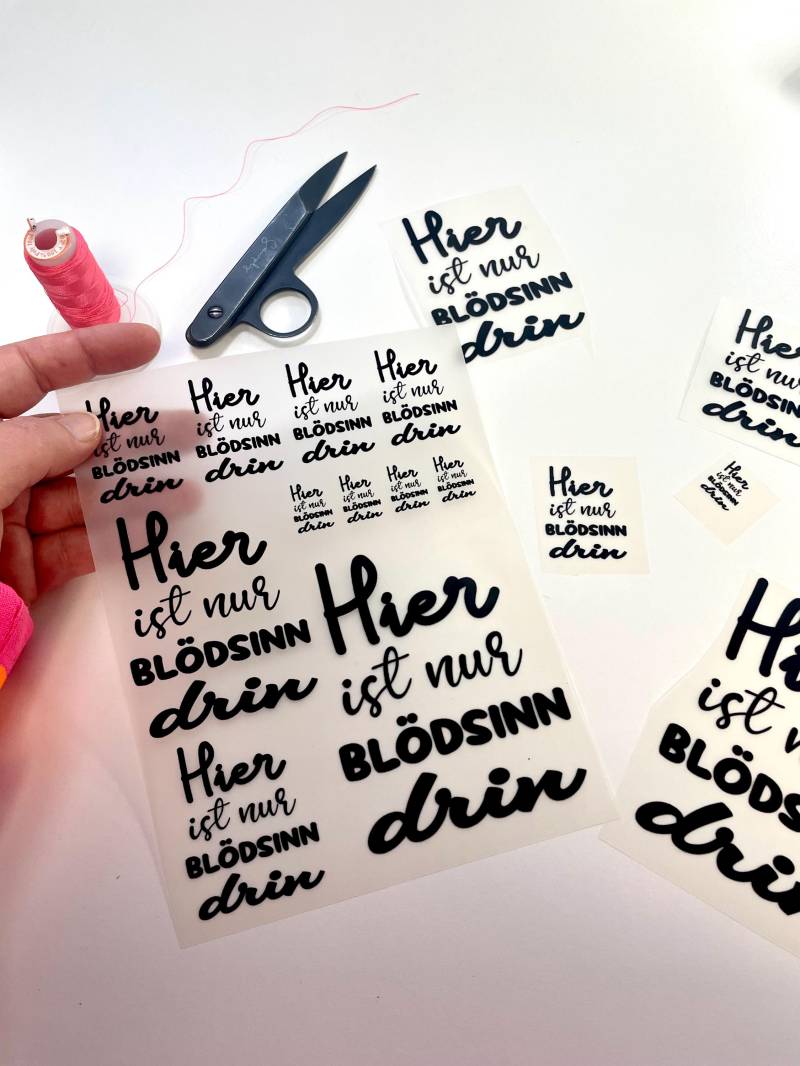 Hier
ist nur
BLÖDSINN
drin
Hier
ist nur
BLÖDSIN
drin
Hier
ist nur
BLÖDSINN
drin
Hier
ist nur
BLÖDSINN
drin
Hier
ist nur
BLÖDSINN
drin
Hier
ist nur
BLÖDSINN
drin
Hier
ist nur
BLÖDSINN
drin
Hier
ist nur
BLÖDSINN
drin
Hier
ist nur
BLÖDSINN
drin
Hier
ist nur
BLÖDSINN
drin
Hier
ist nur
BLÖDSINN
drin
Hier
ist nur
BLÖDSINN
drin
Hier
ist nur
BLÖDSINN
drin
Hier
ist nur
BLÖDSINN
drin
Hier
ist nur
BLÖDSINN
drin
Hi
ist n
BLÖDS
drin